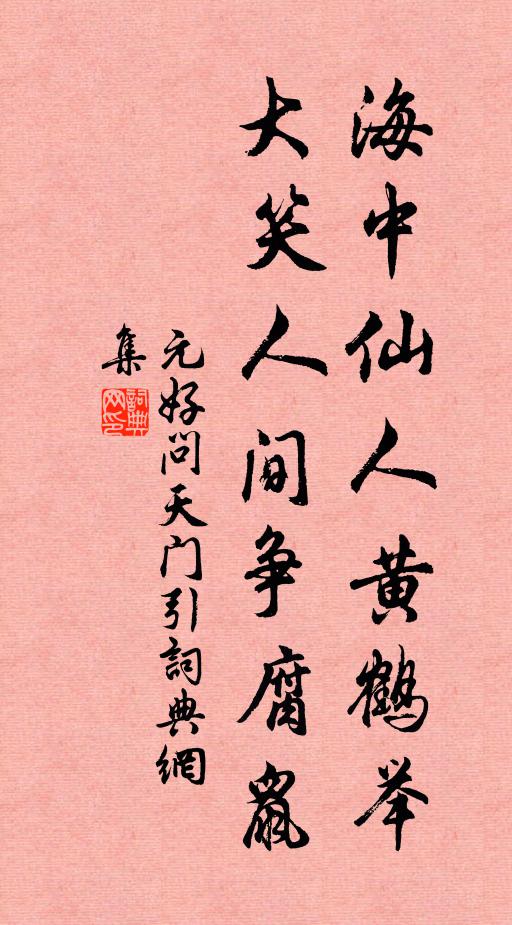 海中仙人黄鹤举
大笑人间争腐鼠
元好问天门引詞典網
集
詞典网印